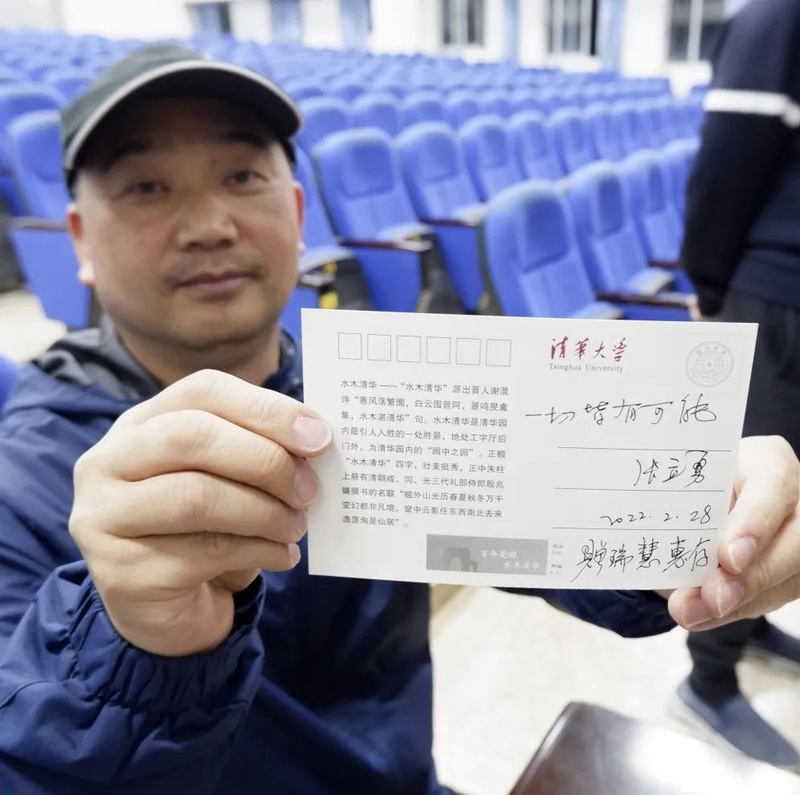 水木清华——“水木清华”源出晋人谢混
诗“惠风荡繁囿，白云囤曾阿，景鸣戾禽
集，水木湛清华”句。水木清华是清华园
内最引人入胜的一处胜景，地处工字厅后
门外，为清华园内的“园中之园”。正额
“水木清华”四字，壮美挺秀，正中朱柱
上悬有清朝咸、同、光三代礼部侍郎殷兆
镛撰书的名联“槛外山光历春夏秋冬万千
变幻都非凡境，窗中云影任东西南北去来
澹荡洵是仙居”。
清华大学
Tsinghua University
一切皆有可能
张立勇
2022.2.28
赠瑞慧惠存
百年荣耀
水木清华